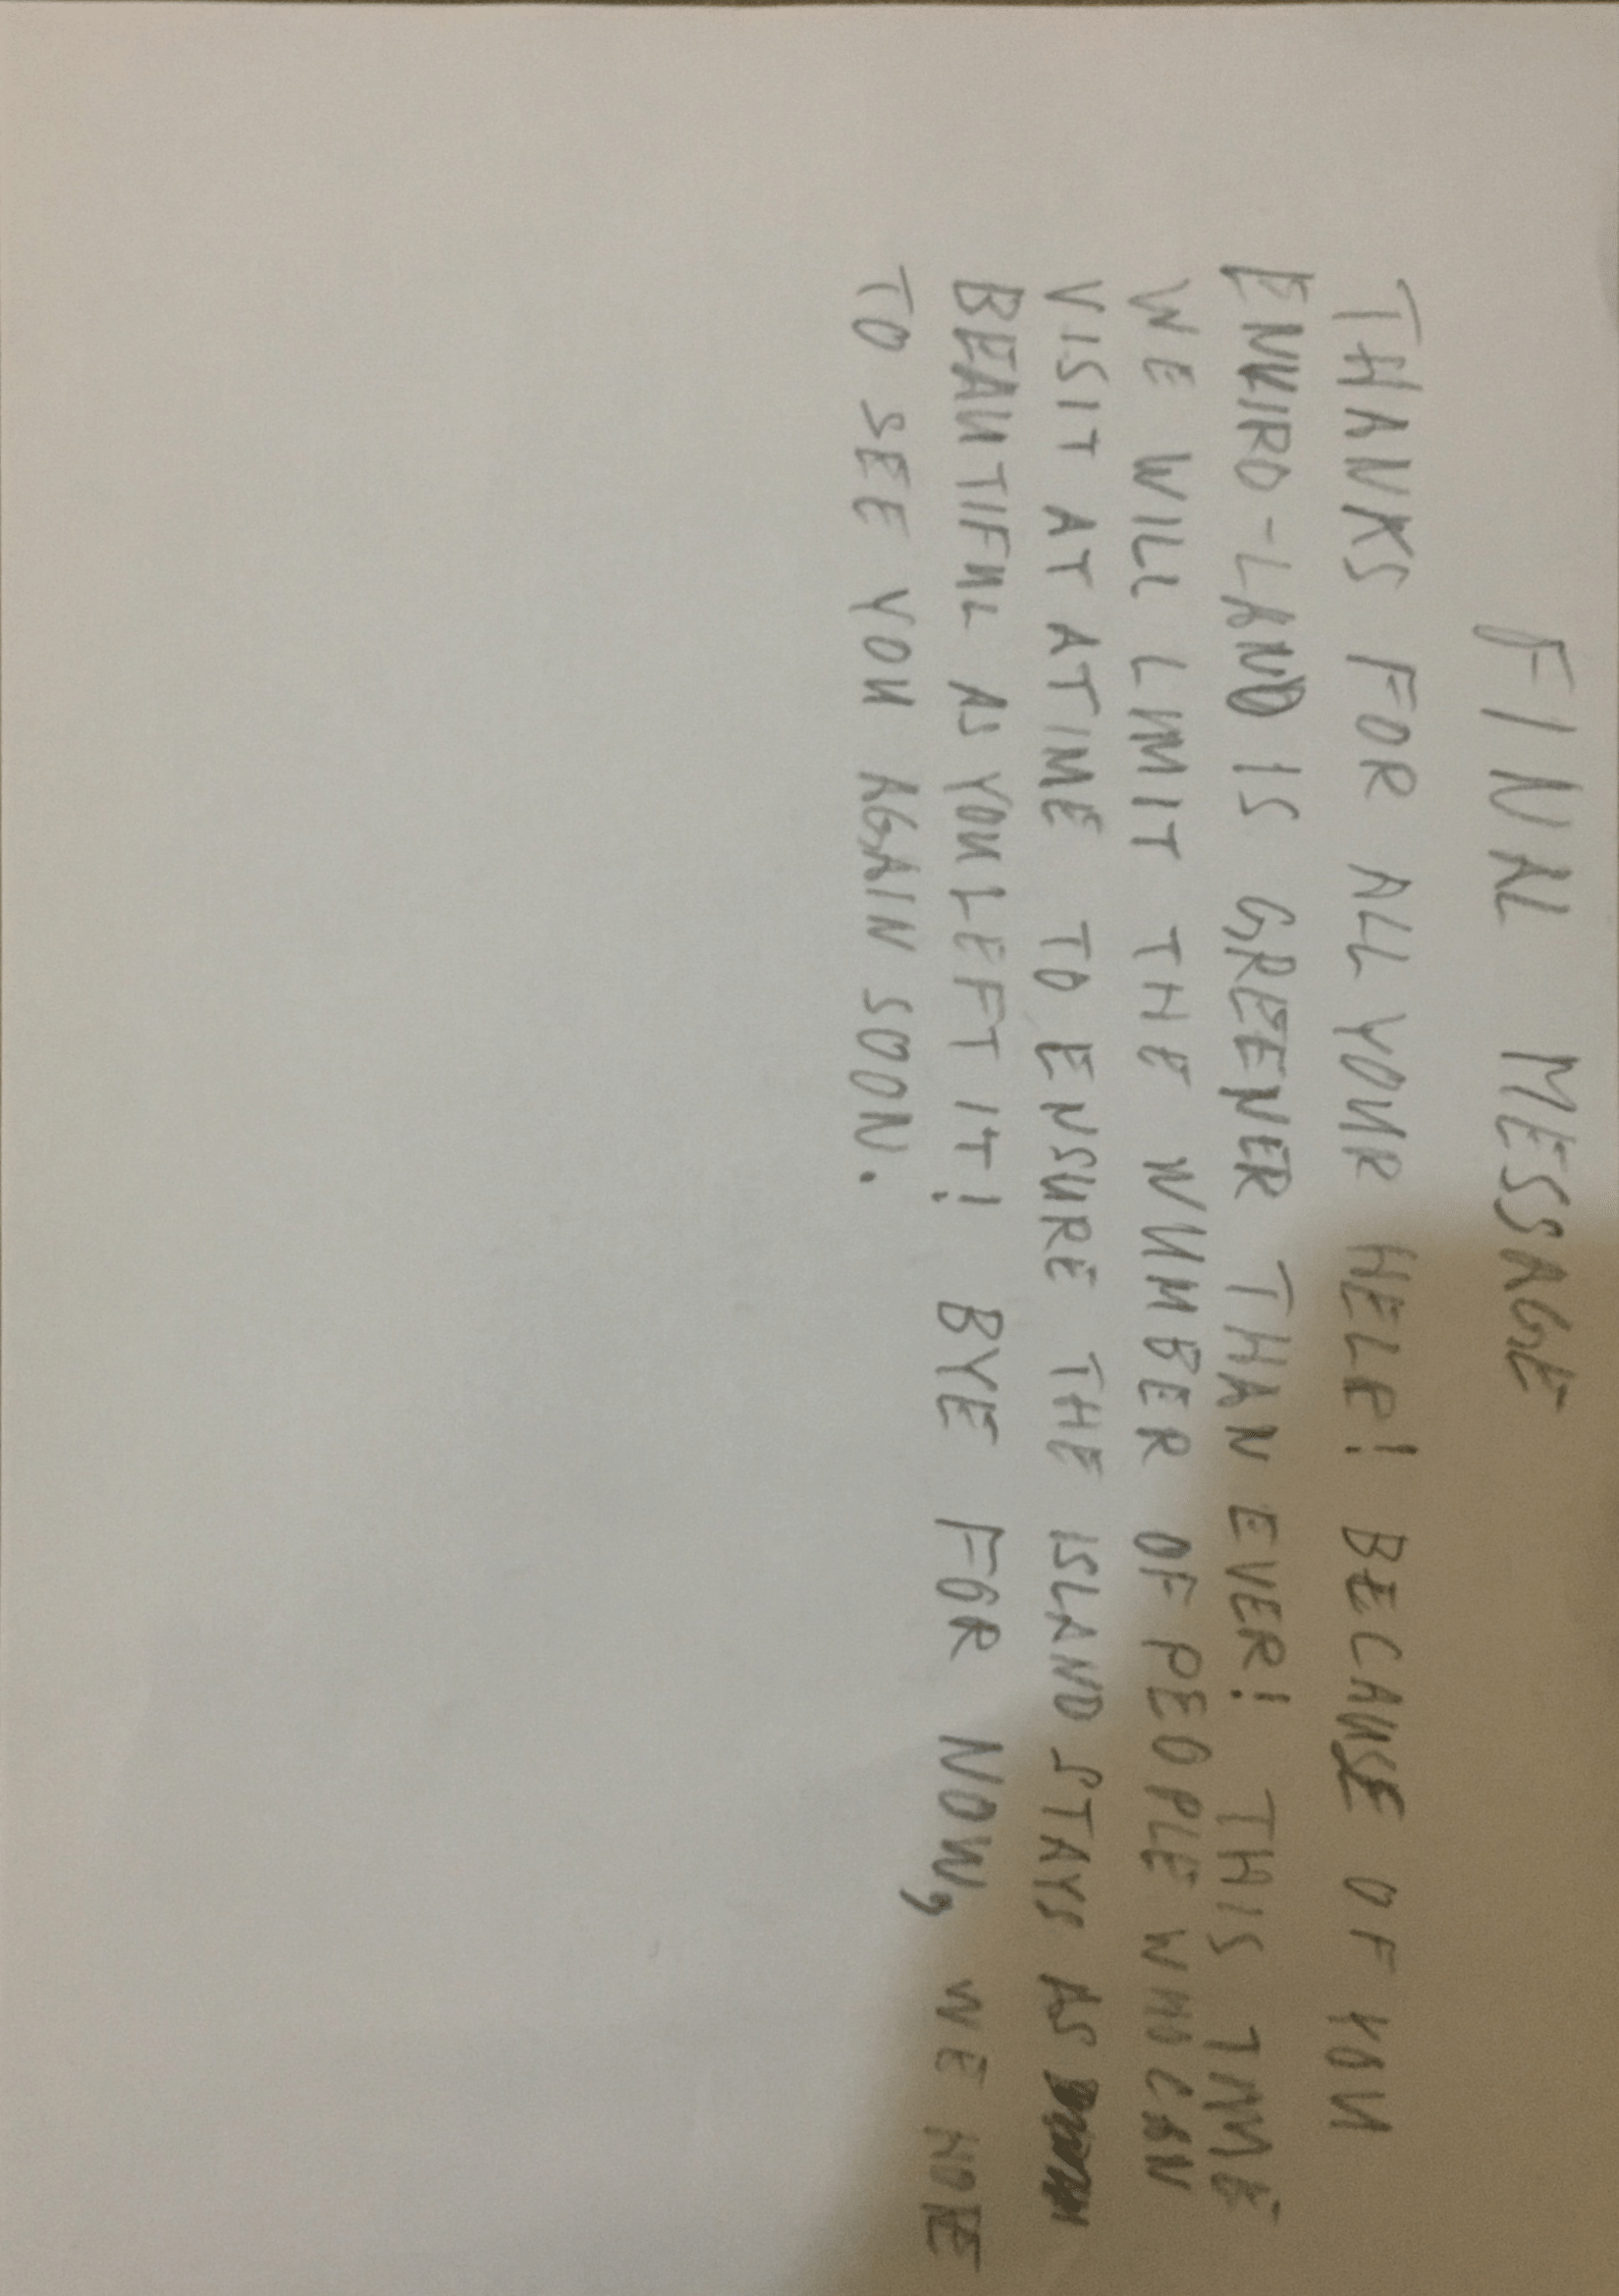 FINAL MESSAGE
THANKS FOR ALL YOUR HELP! BECAUSE OF YOU
ENVIRO-LAND IS GREENER THAN EVER! THIS TIME
WE WILL LIMIT THE NUMBER OF PEOPLE WHO CAN
VISIT AT A TIME TO ENSURE THE ISLAND STAYS AS
BEAUTIFUL AS YOU LEFT IT! BYE FOR NOW, WE HOPE
TO SEE YOU AGAIN SOON.